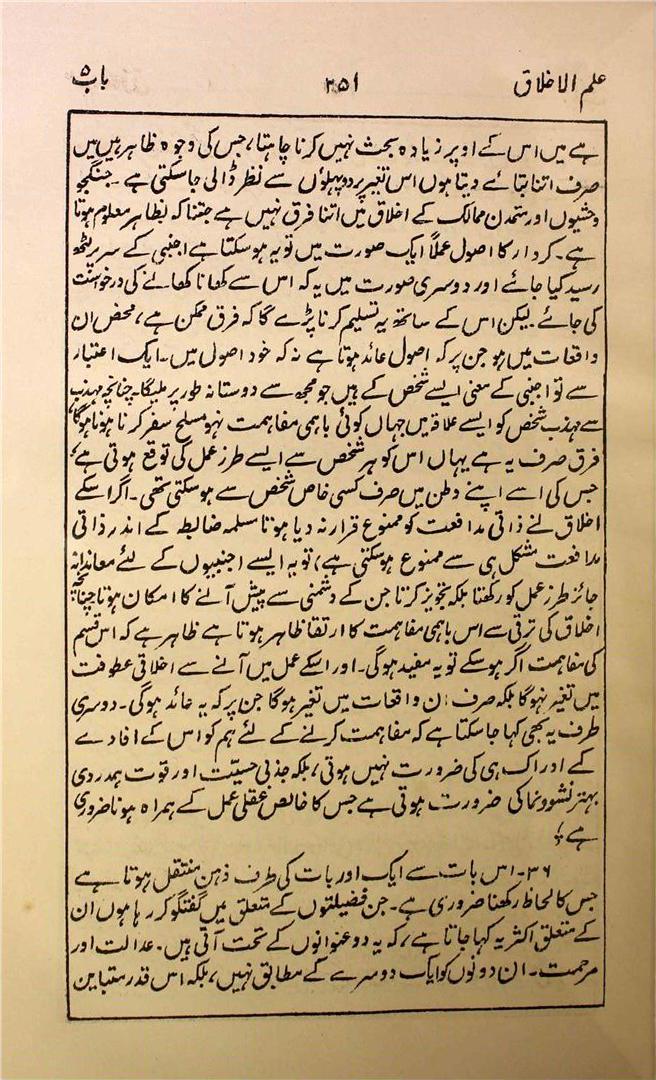 علم الاخلاق ۲۵۱ باب ۵
ہے میں اس کے اوپر زیادہ بحث نہیں کرنا چاہتا، جس کی وجوہ ظاہر ہیں میں
صرف اتنا بتائے دیتا ہوں اس تغیر پر دو پہلوؤں سے نظر ڈالی جاسکتی ہے ۔ جنگجو
وحشیوں اور متمدن ممالک کے اخلاق میں اتنا فرق نہیں ہے جتنا کہ بظاہر معلوم ہوتا
ہے ۔ کردار کا اصول عملاً ایک صورت میں تو یہ ہوسکتا ہے اجنبی کے سر پر لٹھ
رسید کیا جائے اور دوسری صورت میں یہ کہ اس سے کھانا کھانے کی درخواست
کی جائے لیکن اس کے ساتھ یہ تسلیم کرنا پڑے گا کہ فرق ممکن ہے ، محض ان
واقعات میں ہو جن پر کہ اصول عائد ہوتا ہے نہ کہ خود اصول میں ۔ ایک اعتبار
سے تو اجنبی کے معنی ایسے شخص کے ہیں جو مجھ سے دوستانہ طور پر ملیگا ۔ چنانچہ مہذب
سے مہذب شخص کو ایسے علاقہ میں جہاں کوئی باہمی مفاہمت نہو مسلح سفر کرنا ہوتا ہوگا،
فرق صرف یہ ہے یہاں اس کو ہر شخص سے ایسے طرز عمل کی توقع ہوتی ہے ،
جس کی اسے اپنے وطن میں صرف کسی خاص شخص سے ہوسکتی تھی ۔ اگر اسکے
اخلاق نے ذاتی مدافعت کو ممنوع قرار نہ دیا ہوتا مسلمہ ضابطہ کے اندر ذاتی
مدافعت مشکل ہی سے ممنوع ہوسکتی ہے ، تو یہ ایسے اجنبیوں کے لئے معاندانہ
جائز طرز عمل کو رکھتا بلکہ تجویز کرتا جن کے دشمنی سے پیش آنے کا امکان ہوتا چنانچہ
اخلاق کی ترقی سے اس باہمی مفاہمت کا ارتقا ظاہر ہوتا ہے ظاہر ہے کہ اس قسم
کی مفاہمت اگر ہوسکے تو یہ مفید ہوگی ۔ اور اسکے عمل میں آنے سے اخلاقی عطوفت
میں تغیر نہوگا بلکہ صرف ان واقعات میں تغیر ہوگا جن پر کہ یہ عائد ہوگی ۔ دوسری
طرف یہ بھی کہا جاسکتا ہے کہ مفاہمت کرنے کے لئے ہم کو اس کے افادے
کے ادراک ہی کی ضرورت نہیں ہوتی ، بلکہ جذبی حسیّت اور قوت ہمدردی
بہتر نشوونما کی ضرورت ہوتی ہے جس کا خالص عقلی عمل کے ہمراہ ہونا ضروری
ہے ؛
۳۶ ۔ اس بات سے ایک اور بات کی طرف ذہن منتقل ہوتا ہے
جس کا لحاظ رکھنا ضروری ہے ۔ جن فضیلتوں کے متعلق میں گفتگو کر رہا ہوں ان
کے متعلق اکثر یہ کہا جاتا ہے ، کہ یہ دو عنوانوں کے تحت آتی ہیں ۔ عدالت اور
مرحمت ۔ ان دونوں کو ایک دوسرے کے مطابق نہیں ، بلکہ اس قدر متباین